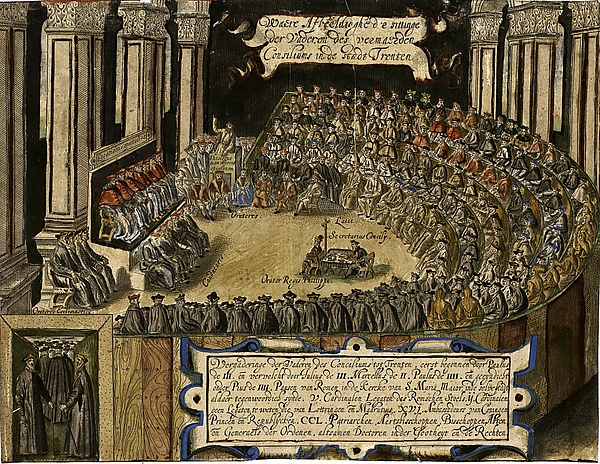 Waere Afbeeldinghe d'e sittinge
der Vaderen des vermaerden
Consiliums in de stadt Trenten
Oratores
Legt
Secretarius Concilij
Orator Regis Philippi
Vergaderinge der Vaderen des Conciliums tot Trenten, eerst begonnen door Paulus
de III. en vervolcht door Julius de III. Marcellus de II. Paulus de IIII. en
Pius de IIII. Pausen van Romen, in de Kercke van S. Maria Maior
aldaer tegenwoordich synde. V. Cardinalen Legaten des Roomschen Stoels, ij. Cardinalen
geen Legaten te weten die van Lottringen en Madrutius, XVI. Ambassadeurs van Coningen
Princen en Republycken, CCL. Patriarchen, Aertsbisschoppen, Bisschoppen, Abten
en Generaels der Ordenen, alsamen Doctoren in der Godtheyt en de Rechten.